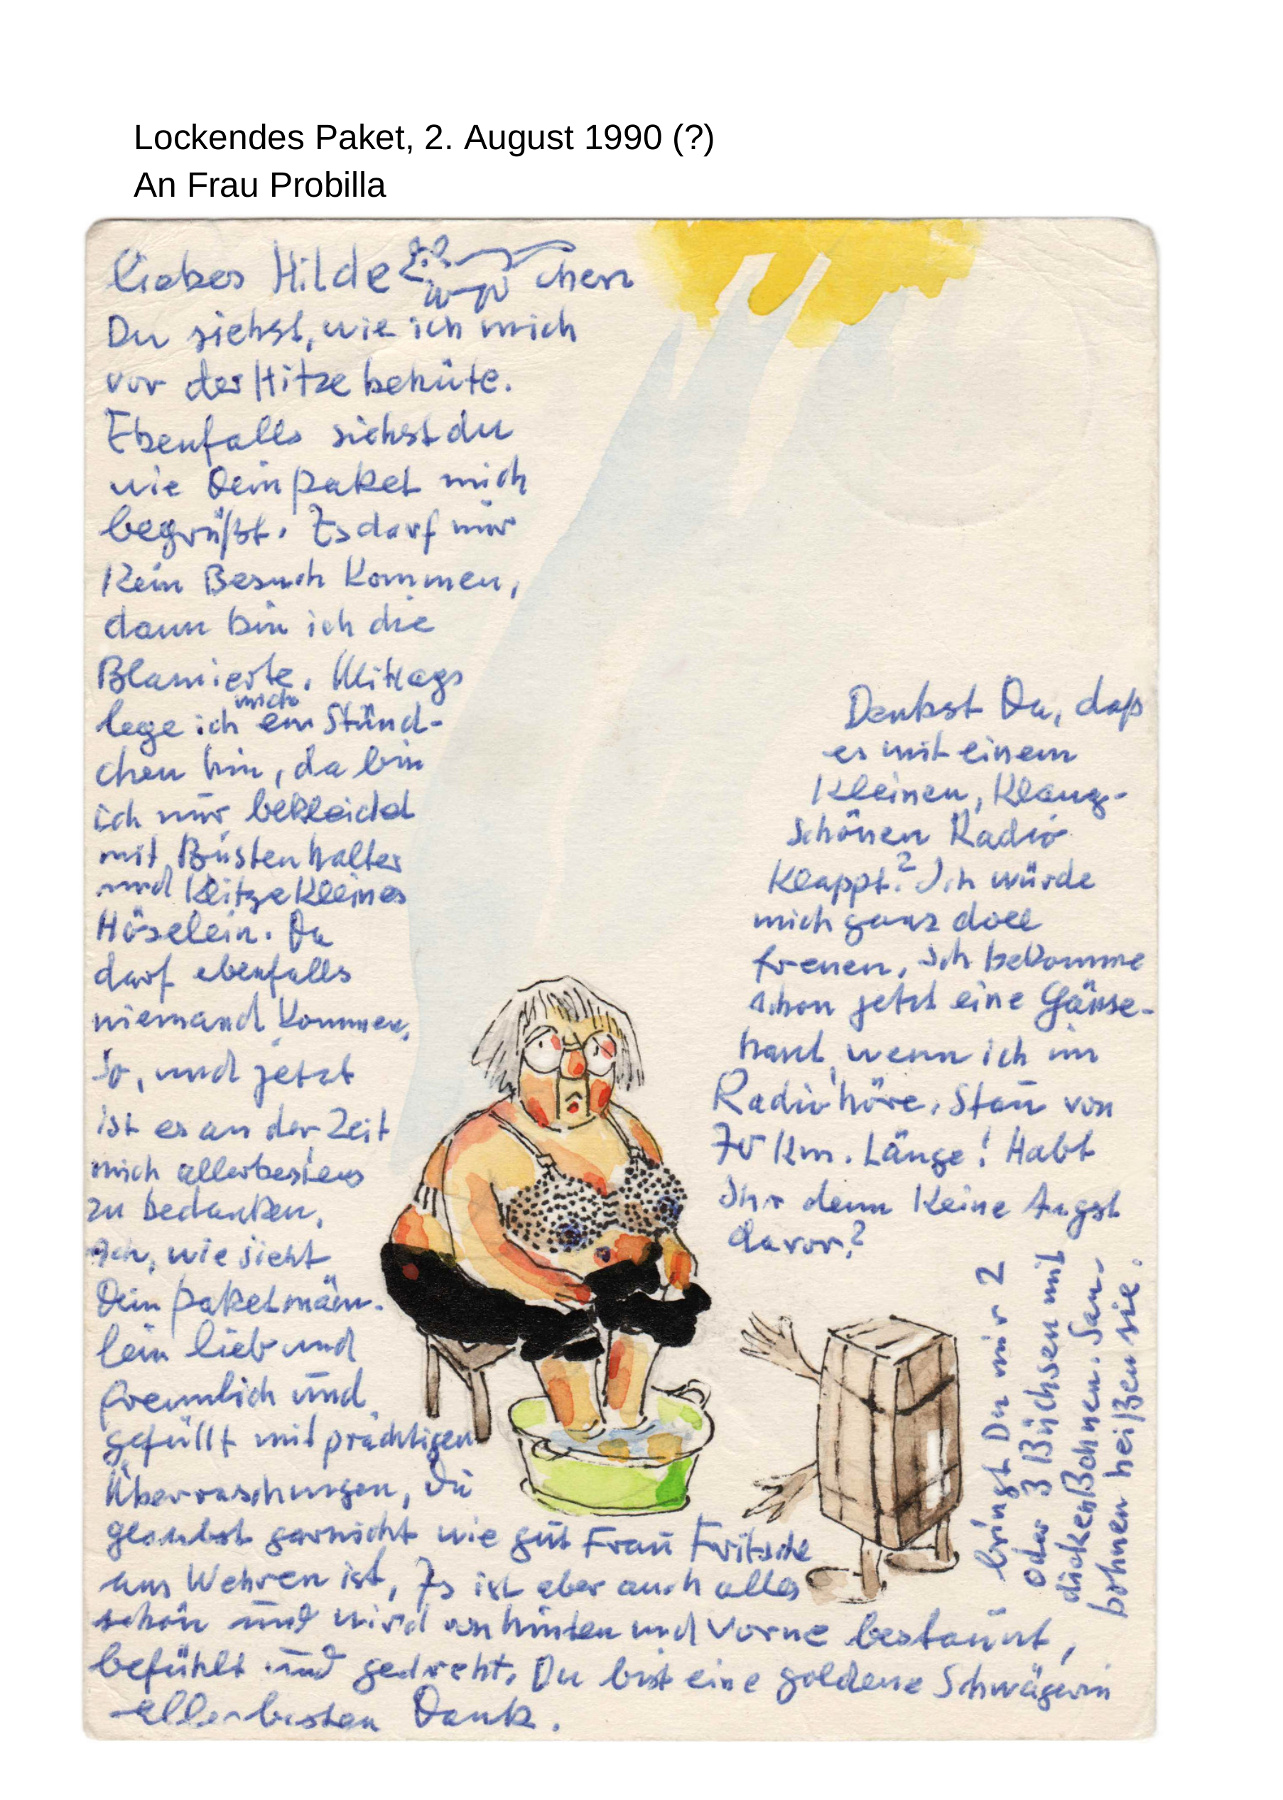 Lockendes Paket, 2. August 1990 (?)
An Frau Probilla
liebes Hilde chen
Du siehst, wie ich mich
vor der Hitze behüte.
Ebenfalls siehst du
wie Dein Paket mich
begrüßt. Es darf nur
Kein Besuch Kommen,
dann bin ich die
Blamierte. Mittags
lege ich mich ein Stünd-
chen hin, da bin
ich nur bekleidet
mit Büstenhalter
und Klitzekleines
Höselein. Da
darf ebenfalls
niemand Kommen.
So, und jetzt
ist es an der Zeit
mich allerbestens
zu bedanken.
Ach, wie sieht
Dein Paketmänn-
lein lieb und
freundlich und
gefüllt mit prächtigen
Überraschungen, Du
glaubst garnicht wie gut Frau Fritsche
am Wehren ist, Es ist aber auch alles
schön und wird von hinten und Vorne bestaunt,
befühlt und gedreht. Du bist eine goldene Schwägerin
allerbesten Dank.
Denkst Du, daß
es mit einem
Kleinen, Klang-
schönen Radio
Klappt? Ich würde
mich ganz doll
freuen, ich bekomme
schon jetzt eine Gänse-
haut, wenn ich im
Radio höre, Stau von
70 Km. Länge! Habt
Ihr denn Keine Angst
davor?
bringt Du mir 2
oder 3 Büchsen mit
dicken Bohnen. Sau-
bohnen heißen sie.